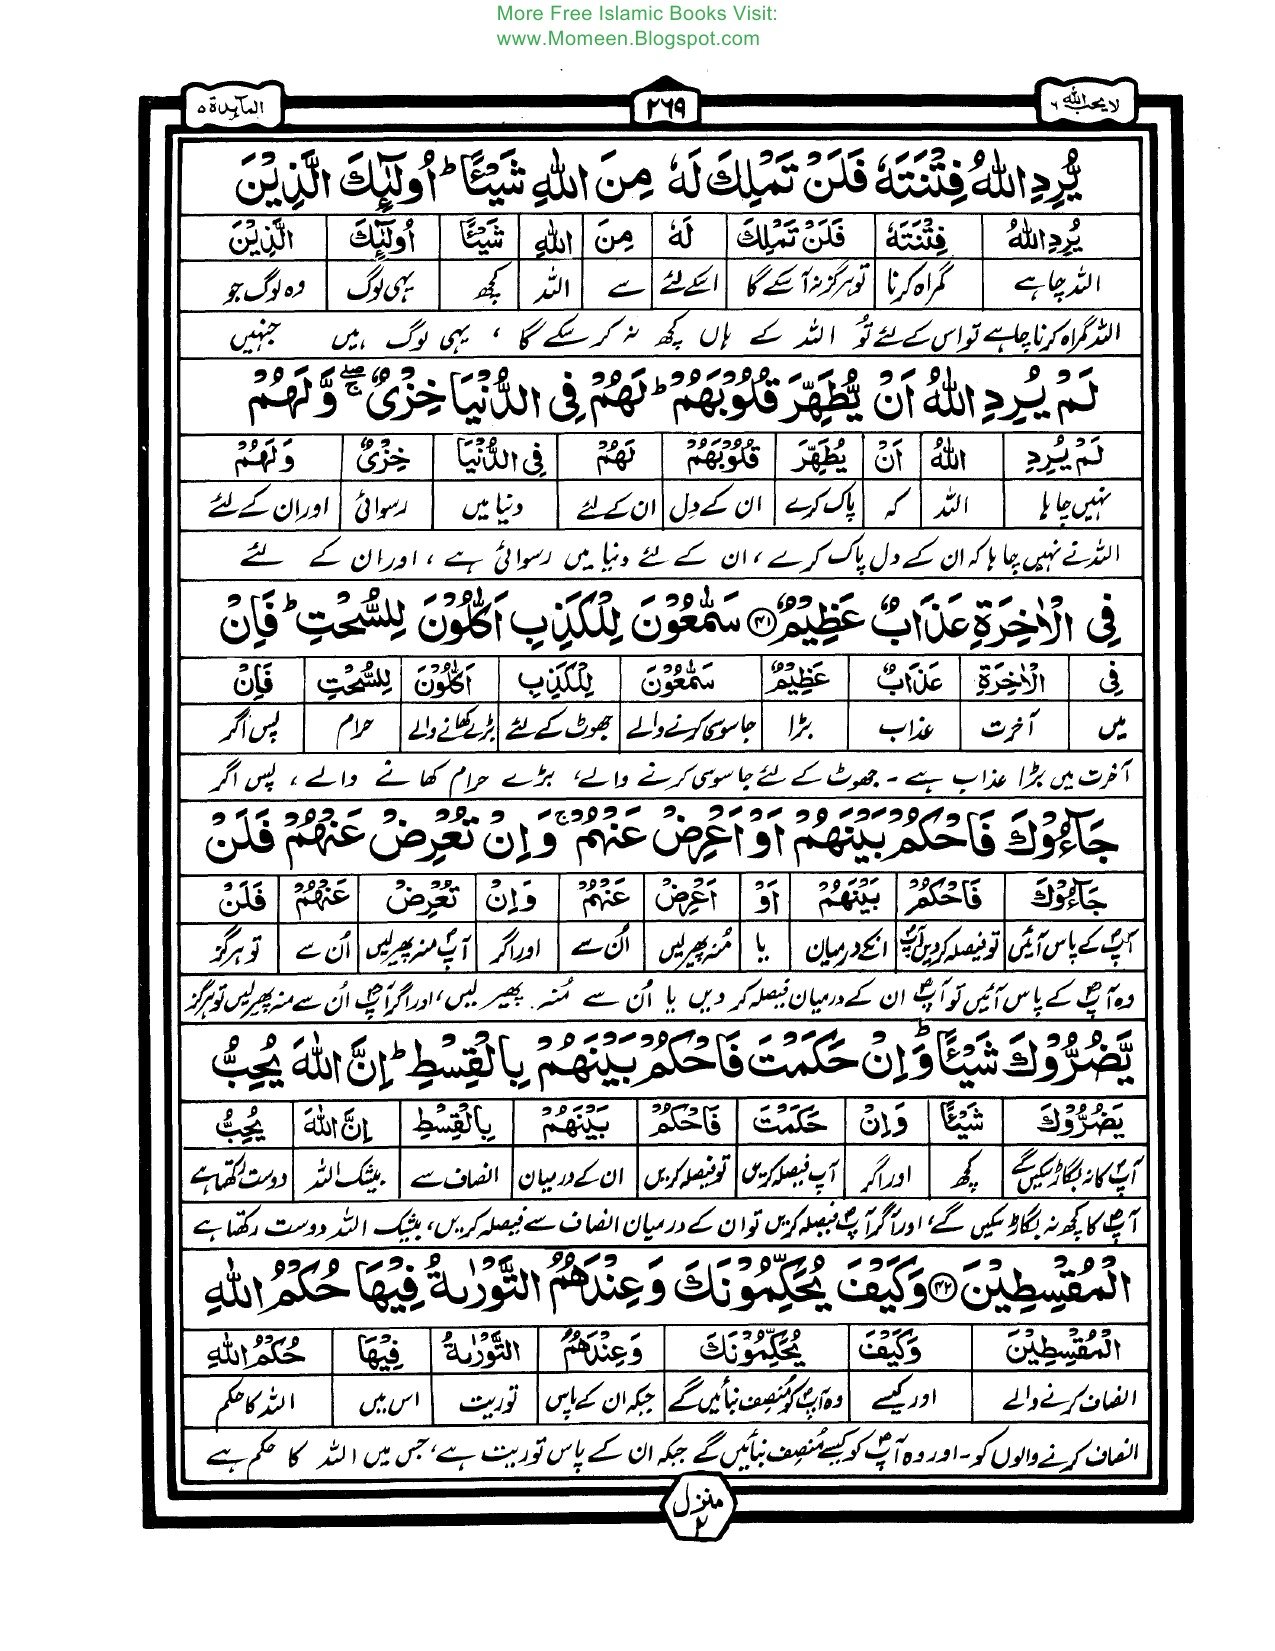 More Free Islamic Books Visit:
www.Momeen.Blogspot.com
لا یحب اللہ ٦ ٢٦٩ المآىِٕدة ٥
يُّرِدِ اللّٰهُ فِتْنَتَهٗ فَلَنْ تَمْلِكَ لَهٗ مِنَ اللّٰهِ شَيْـًٔا ؕ اُولٰٓىِٕكَ الَّذِيْنَ
يُرِدِ اللّٰهُ فِتْنَتَهٗ فَلَنْ تَمْلِكَ لَهٗ مِنَ اللّٰهِ شَيْـًٔا اُولٰٓىِٕكَ الَّذِيْنَ
اللہ چاہے گمراہ کرنا تو ہرگز نہ آسکے گا اسکے لئے سے اللہ کچھ یہی لوگ وہ لوگ جو
اللہ گمراہ کرنا چاہے تو اس کے لئے تُو اللہ کے ہاں کچھ نہ کر سکے گا ، یہی لوگ ہیں جنہیں
لَمْ يُرِدِ اللّٰهُ اَنْ يُّطَهِّرَ قُلُوْبَهُمْ ؕ لَهُمْ فِى الدُّنْيَا خِزْىٌ ۚۖ وَّلَهُمْ
لَمْ يُرِدِ اللّٰهُ اَنْ يُطَهِّرَ قُلُوْبَهُمْ لَهُمْ فِى الدُّنْيَا خِزْىٌ وَلَهُمْ
نہیں چاہا اللہ کہ پاک کرے ان کے دل ان کے لئے دنیا میں رسوائی اور ان کے لئے
اللہ نے نہیں چاہا کہ ان کے دل پاک کرے ، ان کے لئے دنیا میں رسوائی ہے ، اور ان کے لئے
فِى الْاٰخِرَةِ عَذَابٌ عَظِيْمٌ ﴿٤١﴾ سَمّٰعُوْنَ لِلْكَذِبِ اَكّٰلُوْنَ لِلسُّحْتِ ؕ فَاِنْ
فِى الْاٰخِرَةِ عَذَابٌ عَظِيْمٌ سَمّٰعُوْنَ لِلْكَذِبِ اَكّٰلُوْنَ لِلسُّحْتِ فَاِنْ
میں آخرت عذاب بڑا جاسوسی کرنے والے جھوٹ کے لئے بڑے کھانے والے حرام پس اگر
آخرت میں بڑا عذاب ہے - جھوٹ کے لئے جاسوسی کرنے والے، بڑے حرام کھانے والے ، پس اگر
جَآءُوْكَ فَاحْكُمْ بَيْنَهُمْ اَوْ اَعْرِضْ عَنْهُمْ ۚ وَاِنْ تُعْرِضْ عَنْهُمْ فَلَنْ
جَآءُوْكَ فَاحْكُمْ بَيْنَهُمْ اَوْ اَعْرِضْ عَنْهُمْ وَاِنْ تُعْرِضْ عَنْهُمْ فَلَنْ
آپ کے پاس آئیں تو فیصلہ کردیں آپ انکے درمیان یا مُنہ پھیر لیں اُن سے اور اگر آپ منہ پھیر لیں اُن سے تو ہرگز
وہ آپ کے پاس آئیں تو آپ ان کے درمیان فیصلہ کر دیں یا اُن سے مُنہ پھیر لیں، اور اگر آپ اُن سے منہ پھیر لیں تو ہرگز
يَّضُرُّوْكَ شَيْـًٔا ؕ وَاِنْ حَكَمْتَ فَاحْكُمْ بَيْنَهُمْ بِالْقِسْطِ ؕ اِنَّ اللّٰهَ يُحِبُّ
يَضُرُّوْكَ شَيْـًٔا وَاِنْ حَكَمْتَ فَاحْكُمْ بَيْنَهُمْ بِالْقِسْطِ اِنَّ اللّٰهَ يُحِبُّ
آپ کا نہ بگاڑ سکیں گے کچھ اور اگر آپ فیصلہ کریں تو فیصلہ کریں ان کے درمیان انصاف سے بیشک اللہ دوست رکھتا ہے
آپ کا کچھ نہ بگاڑ سکیں گے، اور اگر آپ فیصلہ کریں تو ان کے درمیان انصاف سے فیصلہ کریں، بیشک اللہ دوست رکھتا ہے
الْمُقْسِطِيْنَ ﴿٤٢﴾ وَكَيْفَ يُحَكِّمُوْنَكَ وَعِنْدَهُمُ التَّوْرٰىةُ فِيْهَا حُكْمُ اللّٰهِ
الْمُقْسِطِيْنَ وَكَيْفَ يُحَكِّمُوْنَكَ وَعِنْدَهُمُ التَّوْرٰىةُ فِيْهَا حُكْمُ اللّٰهِ
انصاف کرنے والے اور کیسے وہ آپ کو مُنصف بنائیں گے جبکہ ان کے پاس توریت اس میں اللہ کا حکم
انصاف کرنے والوں کو - اور وہ آپ کو کیسے مُنصف بنائیں گے جبکہ ان کے پاس توریت ہے، جس میں اللہ کا حکم ہے
منزل ٢